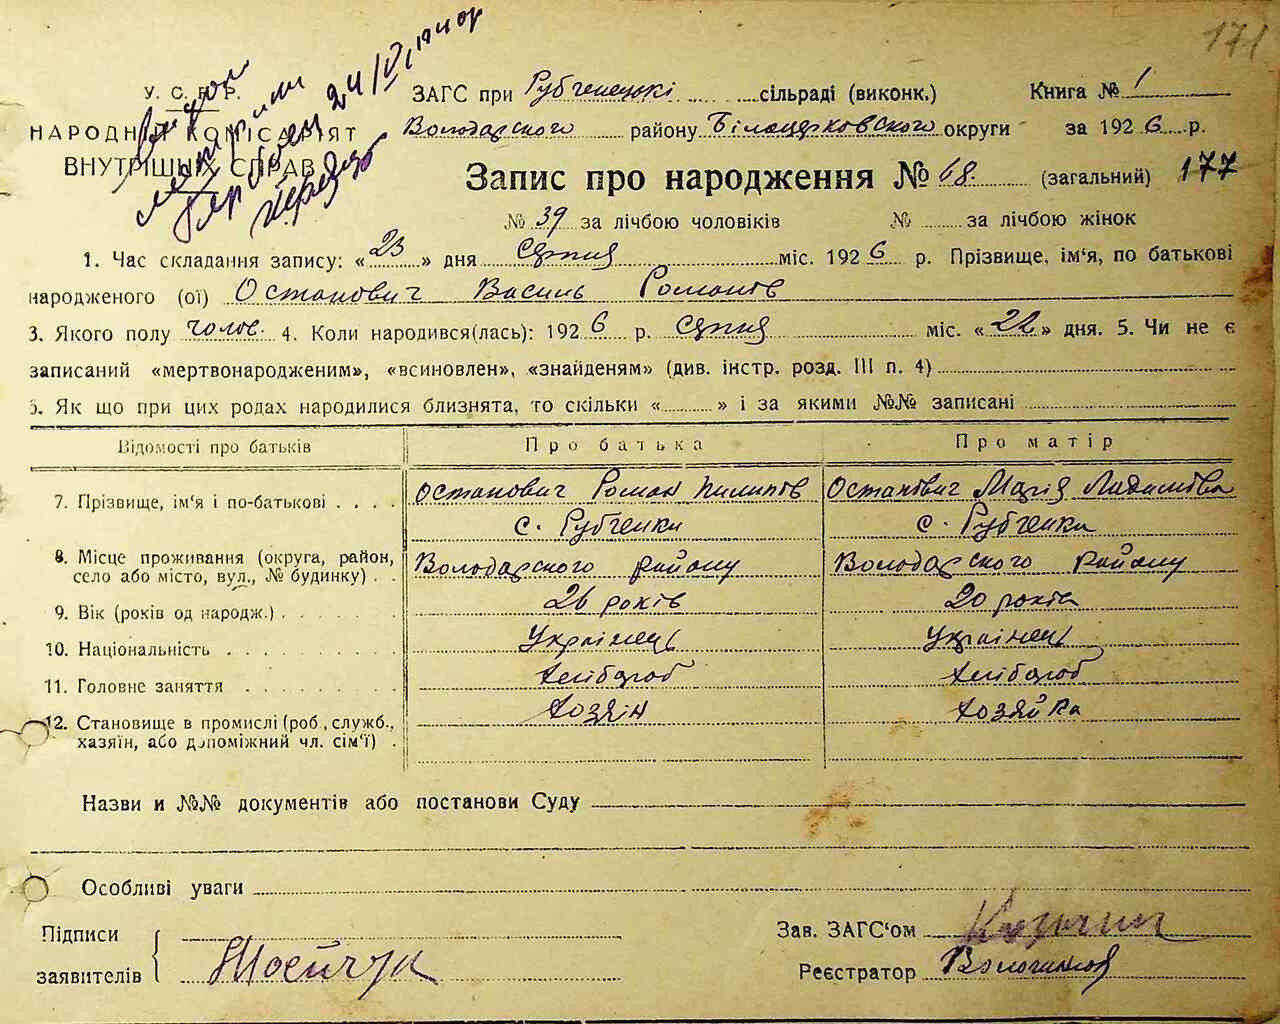 171
У. С. Р. Р.
НАРОДНІЙ КОМІСАРІЯТ
ВНУТРІШНІХ СПРАВ
24/VI 1940р
ЗАГС при Рубченецькі сільраді (виконк.) Книга № 1
Володарского району Білоцерковского округи за 1926 р.
Запис про народження № 68 (загальний) 177
№ 39 за лічбою чоловіків № за лічбою жінок
1. Час складання запису: «23» дня серпня міс. 1926 р. Прізвище, ім'я, по батькові
народженого (ої) Останович Василь Романів
3. Якого полу чолов. 4. Коли народився(лась): 1926 р. серпня міс. «22» дня. 5. Чи не є
записаний «мертвонародженим», «всиновлен», «знайденям» (див. інстр. розд. III п. 4)
5. Як що при цих родах народилися близнята, то скільки « » і за якими №№ записані
Відомості про батьків Про батька Про матір
7. Прізвище, ім'я і по-батькові Останович Роман Пилипів Останович Марія
с. Рубченки с. Рубченки
8. Місце проживання (округа, район,
село або місто, вул., № будинку) Володарского району Володарского району
9. Вік (років од народж.) 26 років 20 років
10. Національність Українець Українець
11. Головне заняття хлібороб хлібороб
12. Становище в промислі (роб., служб.,
хазяїн, або допоміжний чл. сім'ї) хозяін хозяйка
Назви и №№ документів або постанови Суду
Особливі уваги
Підписи
заявителів
Зав. ЗАГС'ом
Реєстратор